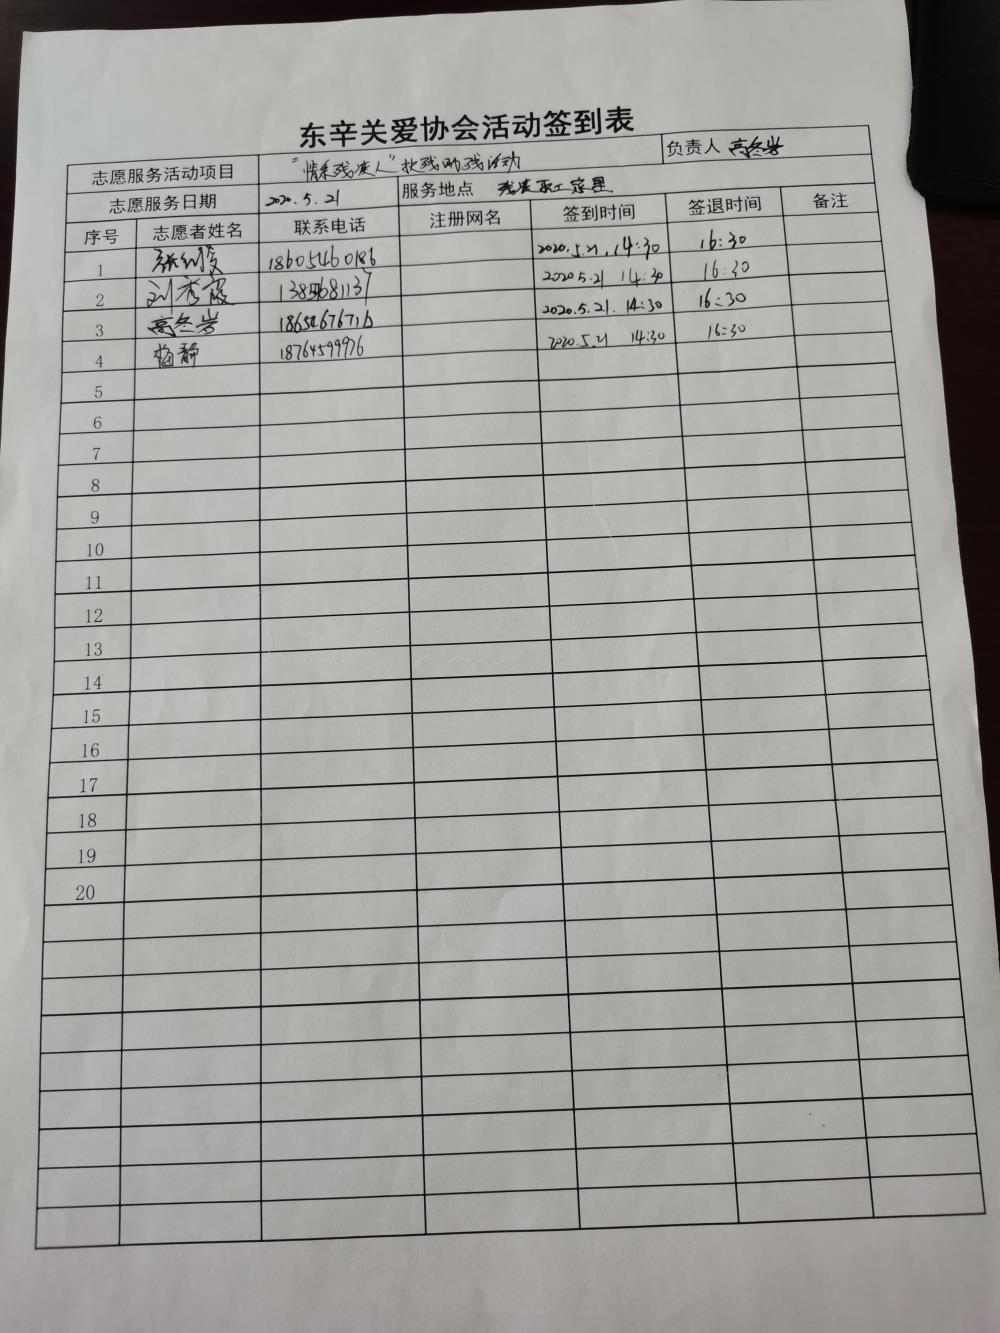 东辛关爱协会活动签到表
志愿服务活动项目 "情系残疾人"扶残助残活动 负责人 高冬岩
志愿服务日期 2020.5.21 服务地点 残疾职工家里
序号 志愿者姓名 联系电话 注册网名 签到时间 签退时间 备注
1 18605460186 2020.5.21. 14:30 16:30
2 刘秀霞 2020 5.21 14:30 16:30
3 高冬岩 18654676716 2020.5.21. 14:30 16:30
4 梅静 18764599976 2020.5.21 14:30 16:30
5
6
7
8
9
10
11
12
13
14
15
16
17
18
19
20